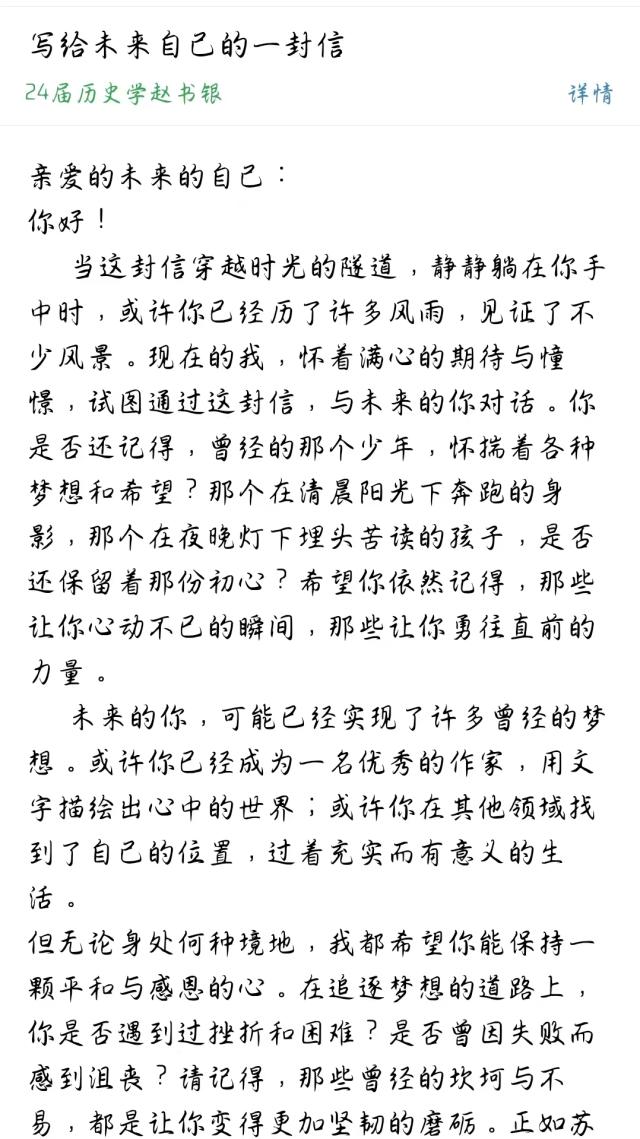 写给未来自己的一封信
24届历史学赵书银
详情
亲爱的未来的自己：
你好！
当这封信穿越时光的隧道，静静躺在你手
中时，或许你已经历了许多风雨，见证了不
少风景。现在的我，怀着满心的期待与憧
憬，试图通过这封信，与未来的你对话。你
是否还记得，曾经的那个少年，怀揣着各种
梦想和希望？那个在清晨阳光下奔跑的身
影，那个在夜晚灯下埋头苦读的孩子，是否
还保留着那份初心？希望你依然记得，那些
让你心动不已的瞬间，那些让你勇往直前的
力量。
未来的你，可能已经实现了许多曾经的梦
想。或许你已经成为一名优秀的作家，用文
字描绘出心中的世界；或许你在其他领域找
到了自己的位置，过着充实而有意义的生
活。
但无论身处何种境地，我都希望你能保持一
颗平和与感恩的心。在追逐梦想的道路上，
你是否遇到过挫折和困难？是否曾因失败而
感到沮丧？请记得，那些曾经的坎坷与不
易，都是让你变得更加坚韧的磨砺。正如苏